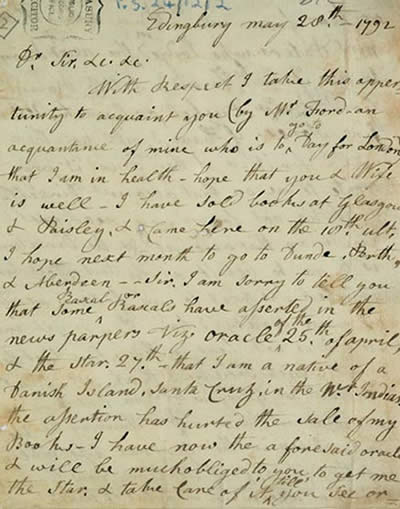 T.S. 24/12/2
Edingbury may 28.th - 1792
Dr. Sir, &c. &c.
With Respect I take this apper-
tunity to acquaint you (by Mr. Ford - an
acquantance of mine who is to go to Day for London
that I am in health - hope that you & Wife
is well - I have sold books at Glasgow
& Paisley, & Came here on the 10th. ult.
I hope next month to go to Dunde, Perth,
& Aberdeen -- Sir, I am sorry to tell you
that some Raskal or Rascals have asserted in the
news parpers Viz. oracle of the 25.th of april,
& the Star. 27.th - that I am a native of a
Danish Island, Santa Cruz, in the Wt. Indias
the assertion has hurted the sale of my
Books - I have now the a foresaid oracle
& will be much obliged to you to get me
the Star, & take Care of it till you see or -